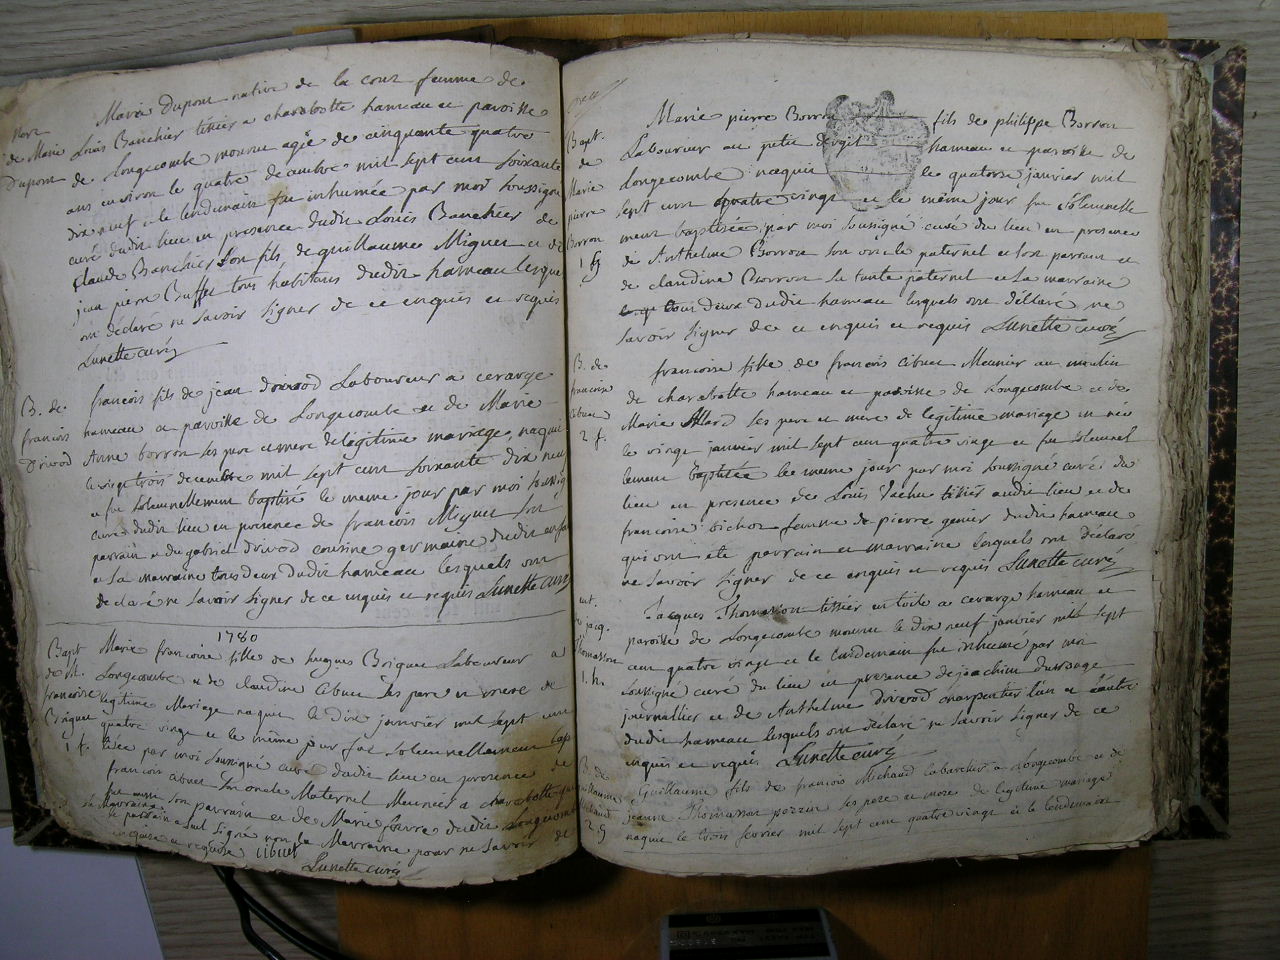 mort
de Marie
Dupont
Marie Dupont native de la cour femme de
Louis Banchier tissier a charabotte hameau et paroisse
de Longecombe mourru agée de cinquante quatre
ans environ le quatre decembre mil sept cent soixante
dix neuf et le lendemain fut inhumée par moi soussigné
curé dudit lieu en presence dudit Louis Banchier de
claude Banchier son fils, de guillaume Miguet et de
jean pierre Buffet tous habitans dudit hameau lesquels
ont déclaré ne savoir signer de ce enquis et requis
Lunette curé
B. de
francois
Drivod
francois fils de jean drivod Laboureur a cerarge
hameau et paroisse de Longecombe et de Marie
Anne borron ses pere et mere de légitime mariage, naquit
le vingt trois decembre mil sept cent soixante dix neuf
et fut solemnellement baptisé le meme jour par moi soussigné
curé dudit lieu en presence de francois Miguet son
parrain et de gabriel drivod cousine germaine dudit enfant
et sa marraine tous deux dudit hameau lesquels ont
declaré ne savoir signer de ce enquis et requis Lunette curé
1780
Bapt
de M.
francoise
Briguet
1 f.
Marie francoise fille de hugues Briguet Laboureur a
Longecombe et de claudine Cibuet ses pere et mere de
légitime Mariage naquit le dix janvier mil sept cent
quatre vingt et le même jour fut solemnellement bap
tisée par moi soussigné curé dudit lieu en presence de
francois cibuet son oncle Maternel Meunier a charabotte qui
fut aussi son parrain et de Marie favre dudit Longecombe
sa Marraine
le parrain a seul signé non la Marraine pour ne savoir de
enquise et requise Cibuet
Lunette curé
Bapt.
de
Marie
pierre
Borron
1 g
Marie pierre Borron fils de philippe Borron
Laboureur au petit hameau et paroisse de
Longecombe naquit le quatorze janvier mil
sept cent quatre vingt et le même jour fut solemnelle
ment baptisée par moi soussigné curé du lieu en presence
de Anthelme Borron son oncle paternel et son parrain et
de claudine Borron sa tante paternel et sa marraine
tous deux dudit hameau lesquels ont déclaré ne
savoir signer de ce enquis et requis Lunette curé
B. de
francoise
cibuet
2 f.
francoise fille de francois cibuet Meunier au moulin
de charabotte hameau et paroisse de Longecombe et de
Marie Allard ses pere et mere de legitime mariage est née
le vingt janvier mil sept cent quatre vingt et fut solemnel
lement baptisée le meme jour par moi soussigné curé du
lieu en presence de Louis Vachu tissier audit lieu et de
francoise bichon femme de pierre genier dudit hameau
qui ont été parrain et marraine lesquels ont déclaré
ne savoir signer de ce enquis et requis Lunette curé
mt.
de jacq.
Thomasson
1. h.
Jacques Thomasson tissier en toile a cerarge hameau et
paroisse de Longecombe mourru le dix neuf janvier mil sept
cent quatre vingt et le lendemain fut inhumé par moi
soussigné curé du lieu en presence de joachim
journallier et de Anthelme drivod charpentier l'un et l'autre
dudit hameau lesquels ont déclaré ne savoir signer de ce
enquis et requis Lunette curé
B. de
guillaume
Michaud
2 g
Guillaume fils de francois Michaud Laboureur a Longecombe et de
jeanne Thomasson ses pere et mere de legitime mariage
naquit le trois fevrier mil sept cent quatre vingt et le lendemain